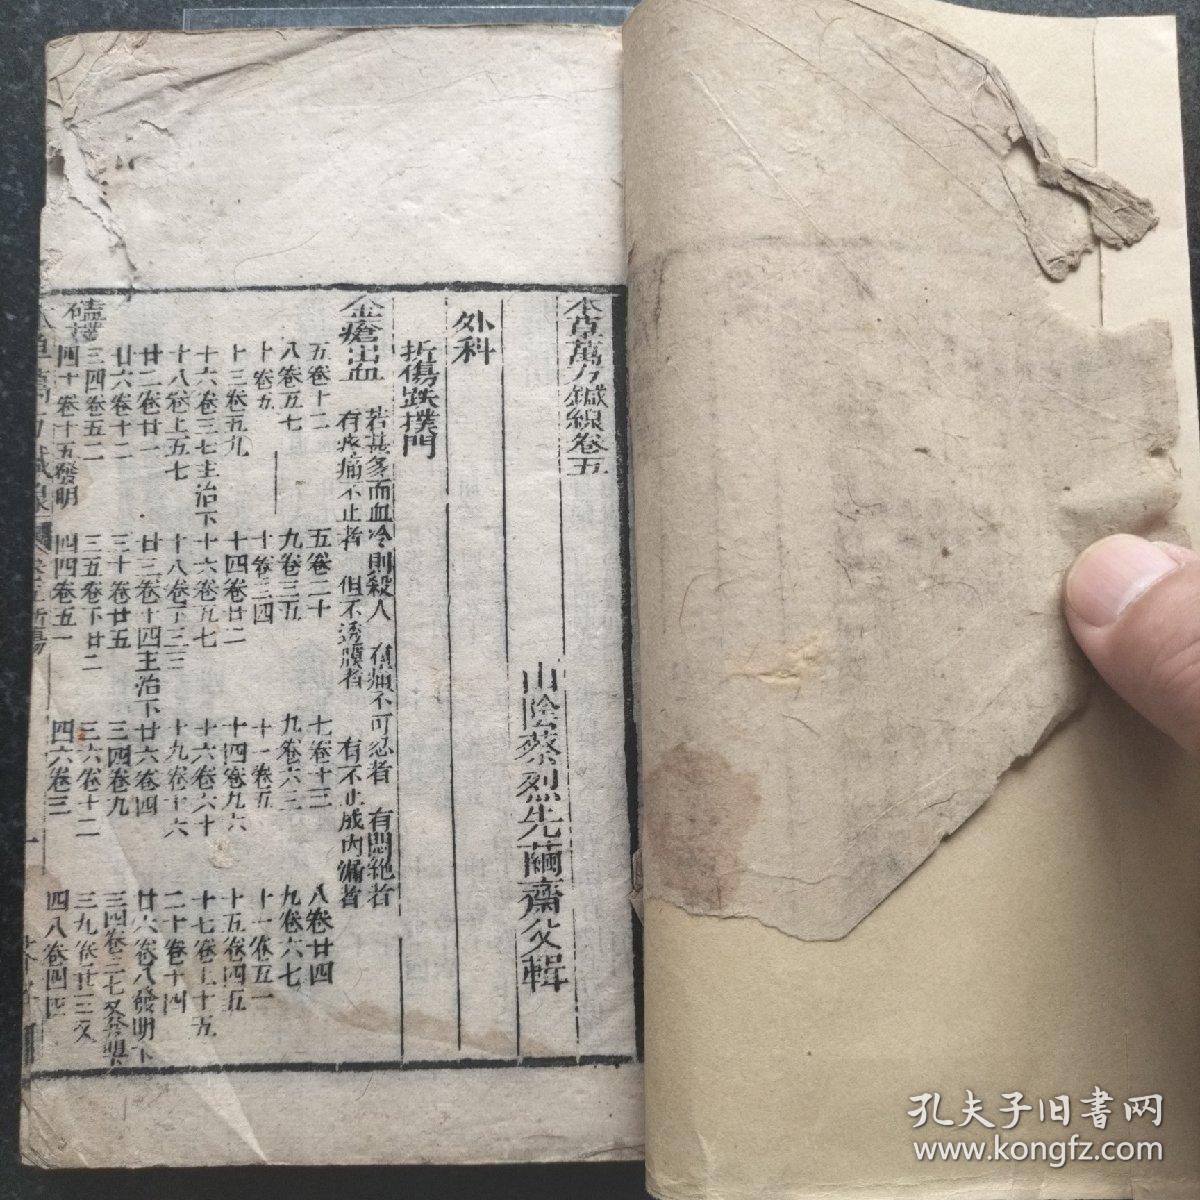 本草萬方鍼線卷五
山陰蔡烈先繭齋父輯
外科
折傷跌撲門
金瘡出血
若甚多而血冷則殺人 有痛不可忍者 有悶絶者
有疼痛不止者 但不透膜者 有不止成內漏者
五卷十二 五卷二十 七卷十三 八卷廿四
八卷五七 九卷三五 九卷六三 九卷六七
十卷五 十卷三四 十一卷五 十一卷五一
十三卷五九 十四卷廿二 十四卷九六 十五卷四五
十六卷三七主治下 十六卷九七 十六卷六十 十七卷上十五
十八卷上五七 十八卷下三三 十九卷十六 二十卷十四
廿二卷廿一 廿三卷十四主治下 廿六卷四 廿六卷八發明下
廿六卷十二 三十卷廿五 三四卷九
三四卷五二 三五卷下廿二 三六卷十二
四十卷十五發明 四四卷五一 四六卷三 四八卷四
孔夫子旧书网
www.kongfz.com